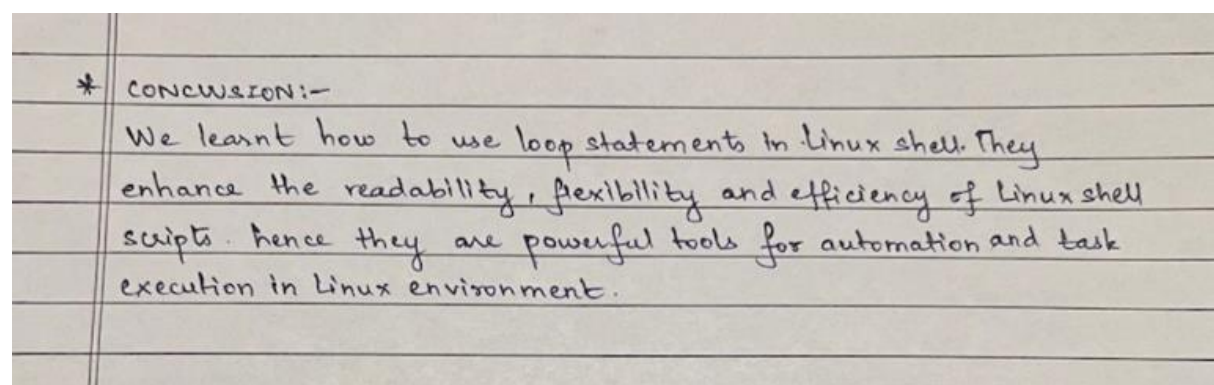 * CONCLUSION:-
We learnt how to use loop statements in Linux shell. They
enhance the readability, flexibility and efficiency of Linux shell
scripts. hence they are powerful tools for automation and task
execution in Linux environment.